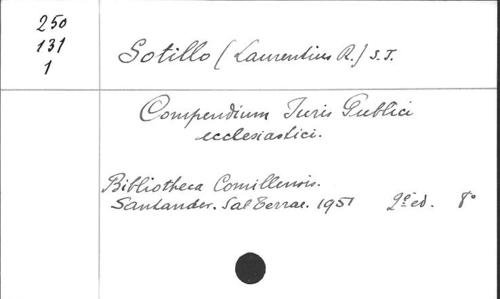 250
131
1
Sotillo (Laurentius R.) S.J.
Compendium Juris Publici
ecclesiastici.
Bibliotheca Comillensis.
Santander. Sal Terrae. 1951 2ª ed. 8º